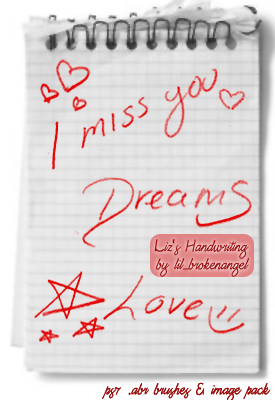 I miss you
Dreams
Liz's Handwriting
by lil_brokenangel
Love
ps7 .abr brushes & image pack